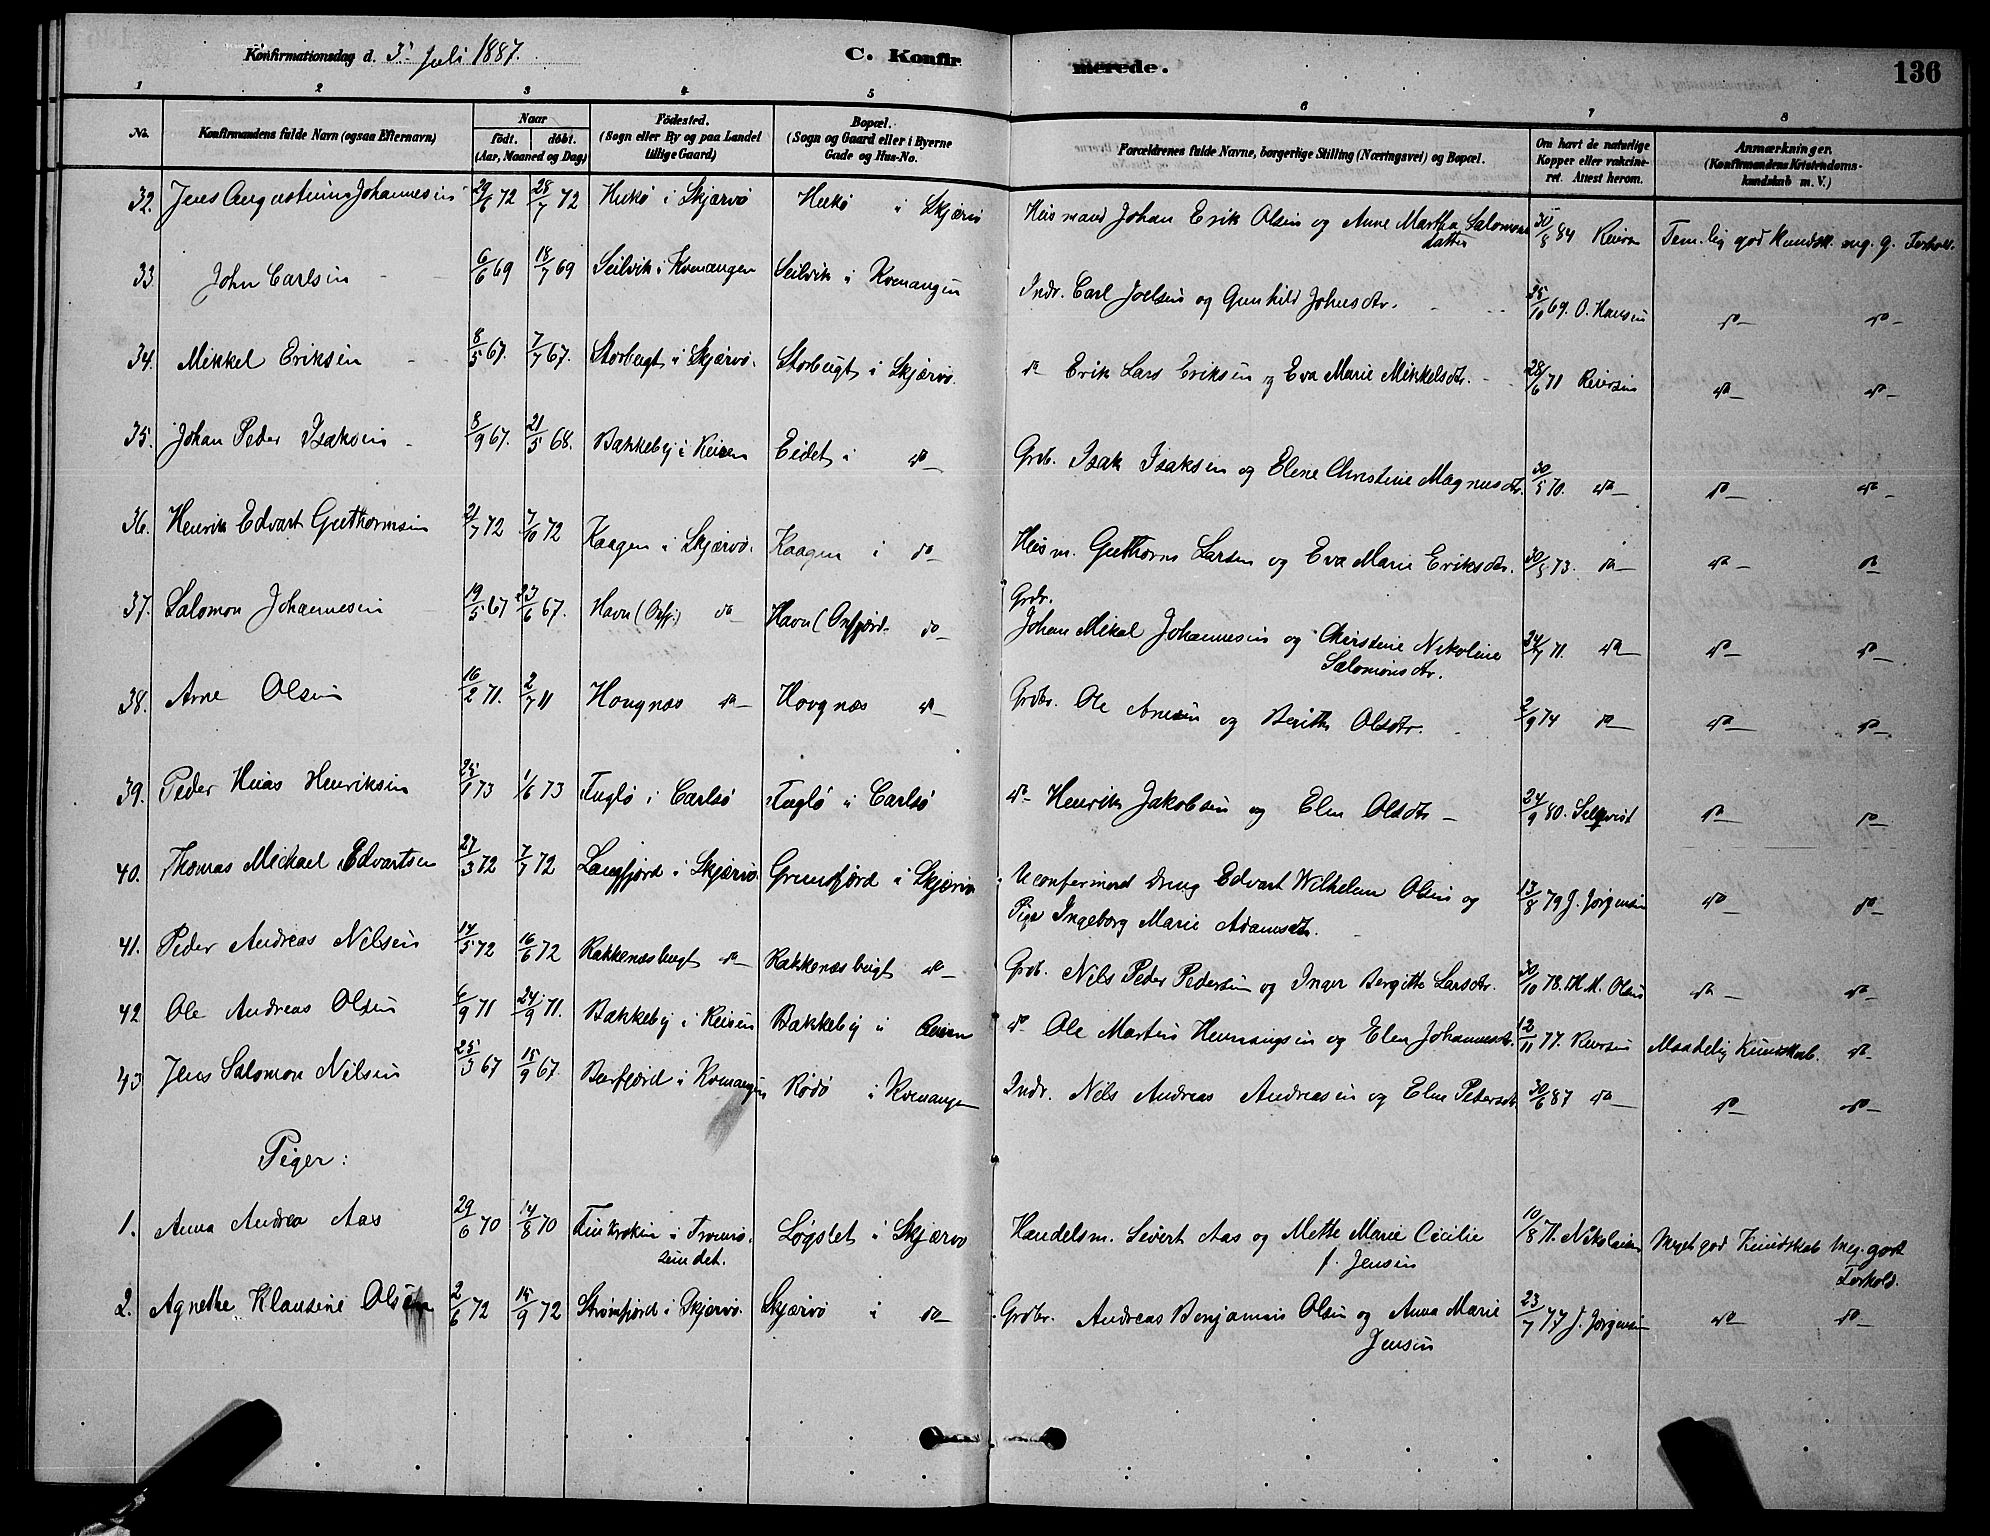 Konfirmationsdag d. 3' Juli 1887. C. Konfirmerede. 136
1 2 3 4 5 6 7 8
No. Konfirmandens fulde Navn (ogsaa Efternavn) Naar født. døbt. (Aar, Maaned og Dag) Fødested. (Sogn eller By og paa Landet tillige Gaard) Bopæl. (Sogn og Gaard eller i Byerne Gade og Hus-No. Forældrenes fulde Navne, borgerlige Stilling (Næringsvei) og Bopæl. Om havt de naturlige Kopper eller vakcineret. Attest herom. Anmærkninger. (Konfirmandens Kristendomskundskab m. V.)
32. Jens Augustinus Johannesen 29/6 72 28/7 72 i Skjærvø i Skjærvø Husmand Johan Erik Olsen og Anne Martha Salomonsdatter 30/8 84 Temlig god Kundsk. mg. g. Forhold.
33. John Carlsen 6/6 69 18/7 69 Seilvik i Kvenangen Seilvik i Kvenangen Indr. Carl Joelsen og Gunhild Johnsdtr. 25/10 69. O. Hansen do do
34. Mikkel Eriksen 8/5 67. 7/7 67. Storbugt i Skjærvø. Storbugt i Skjærvø. do Erik Lars Eriksen og Eva Marie Mikkelsdtr. 28/6 71 Reiersen do do
35. Johan Peder Isaksen 8/9 67. 21/5 68. Bakkeby i Reisen Eidet i do Grdb. Isak Isaksen og Elene Christine Magnusdtr. 30/5 70. do do do
36. Henrik Edvart Guthormsen 21/7 72 7/10 72 Kaagen i Skjærvø. Kaagen i do Husm. Guthorm Larsen og Eva Marie Eriksdtr. 30/5 73. do do do
37. Salomon Johannesen 19/5 67 23/6 67. Havn (Oxfj.) do Havn (Oxfjord. do Grdr. Johan Mikal Johannesen og Christine Nikoline Salomonsdtr. 24/7 71. do do do
38. Arne Olsen 16/2 71. 2/7 71 Hougnæs do Hovgnæs do Grdbr. Ole Arnesen og Berith Olsdtr. 2/9 74 do do do
39. Peder Henriksen 25/1 73 1/6 73 Fuglø i Carlsø Fuglø i Carlsø do Henrik Jakobsen og Elen Olsdtr 24/9 80. Selqvist do do
40. Thomas Michael Edvartsen 27/3 72 7/7 72 Langfjord i Skjærvø. Grundfjord i Skjærvø Uconfirmeret Dreng Edvart Wilhelm Olsen og Pige Ingeborg Marie Adamsdtr. 13/8 79 J. Jørgensen do do
41. Peder Andreas Nilsen 14/5 72 16/6 72 Rakkenæsbugt do Rakkenæsbugt do Grdb. Nils Peder Pedersen og Inger Bergitte Larsdtr. 30/10 78. M. Olsen do do
42 Ole Andreas Olsen 6/9 71 24/9 71. Bakkeby i Reisen Bakkeby i Reisen do Ole Martin Hemmingsen og Elen Johannesdtr. 12/11 77. Reiersen Maadelig Kundskab. do
43 Jens Salomon Nilsen 25/3 67 15/9 67. i Kvenangen Rødø i Kvenangen Indr. Nils Andreas Andreasen og Elen Petersdtr. 30/6 87 do do do
Piger:
1. Anna Andrea Aas 29/6 70 14/8 70 Finkroken i Tromsøsundet. Løgslet i Skjærvø Handelsm. Sivert Aas og Mette Marie Cicilie f. Jensen 10/8 71. Nikolaisen Meget god Kundskab Meg. godt Forhold.
2. Agnethe Klausine Olsen 2/6 72 15/9 72 Strømfjord i Skjærvø. Skjærvø i do Grdbr. Andreas Benjamin Olsen og Anna Marie Jensen 23/7 77 J. Jørgensen do do